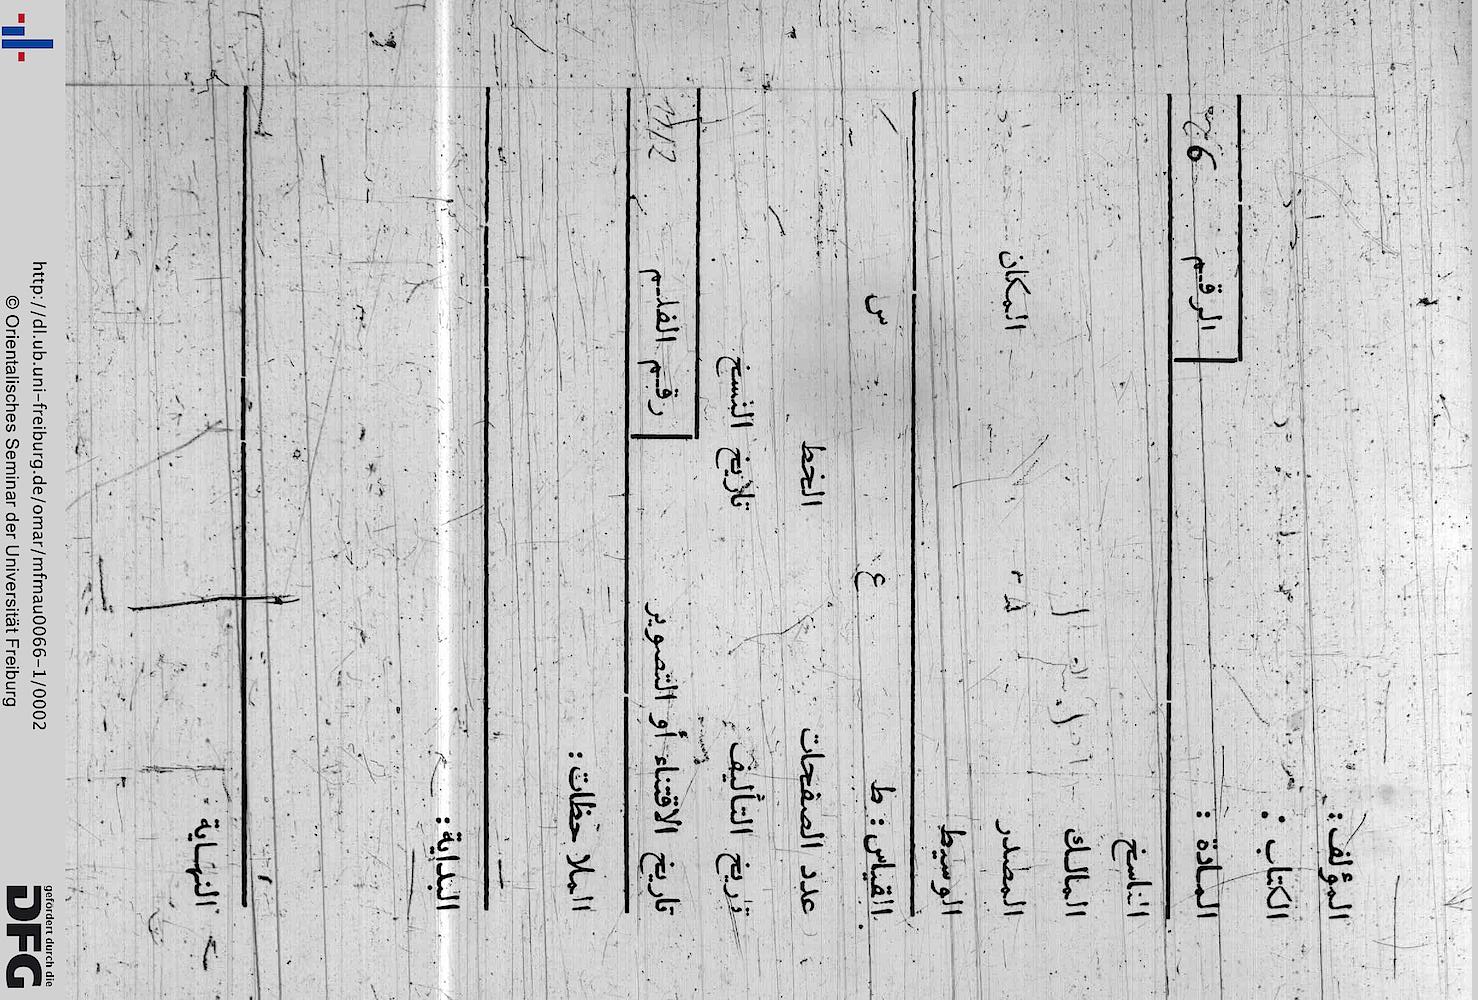 المؤلف :
الكتاب :
المادة : الرقم 6
الناسخ
المالك
المصدر المكان
الوسيط
القياس : ط ع س
عدد الصفحات الخط
تاريخ التأليف تاريخ النسخ
تاريخ الاقتناء أو التصوير رقم الفلم
الملاحظات :
البداية :
النهاية :
http://dl.ub.uni-freiburg.de/omar/mfmau0066-1/0002
© Orientalisches Seminar der Universität Freiburg
gefördert durch die
DFG